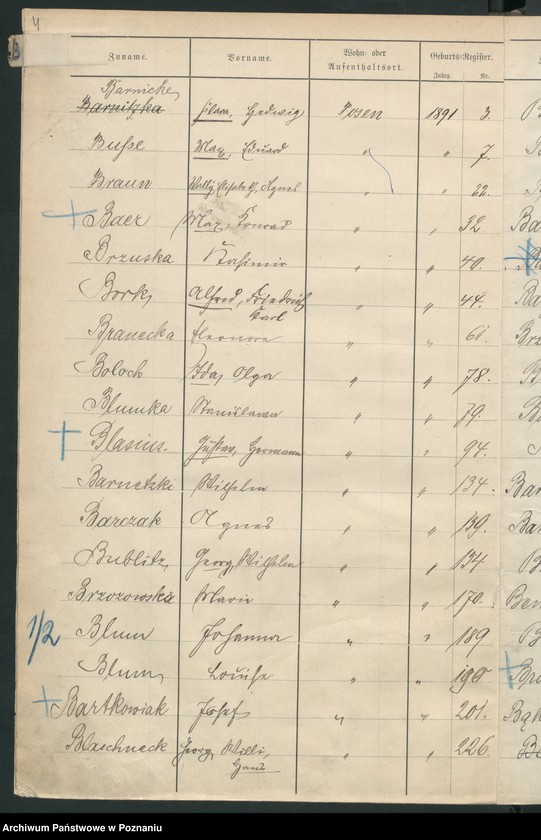 4
Zuname. Vorname. Wohn- oder Aufenthaltsort. Geburts-Register. Jahrg. Nr.
Barnicke
Barnitzka Hedwig Posen 1891 3.
Buße Max, Eduard " " 7.
Braun Elisabeth, Agnes " " 22.
Baer Max, Konrad " " 32
Brzuska Kasimir " " 40.
Bork, Alfred, Friedrich Karl " " 44.
Branecka Eleonore " " 60.
Boloch Ida, Olga " " 78.
Blumka Stanislawa " " 79.
Blasius. Gustav, Hermann " " 94.
Barnetzki Wilhelm " " 134.
Barczak Agnes " " 139.
Bublitz, Georg, Wilhelm " " 154
Brzozowska Marie " " 170.
1/2 Blum Johanna " " 189
Blum, Louise " " 190
Bartkowiak Josef " " 201.
Blaschneck Georg, Willi, Hans " " 226
Archiwum Państwowe w Poznaniu